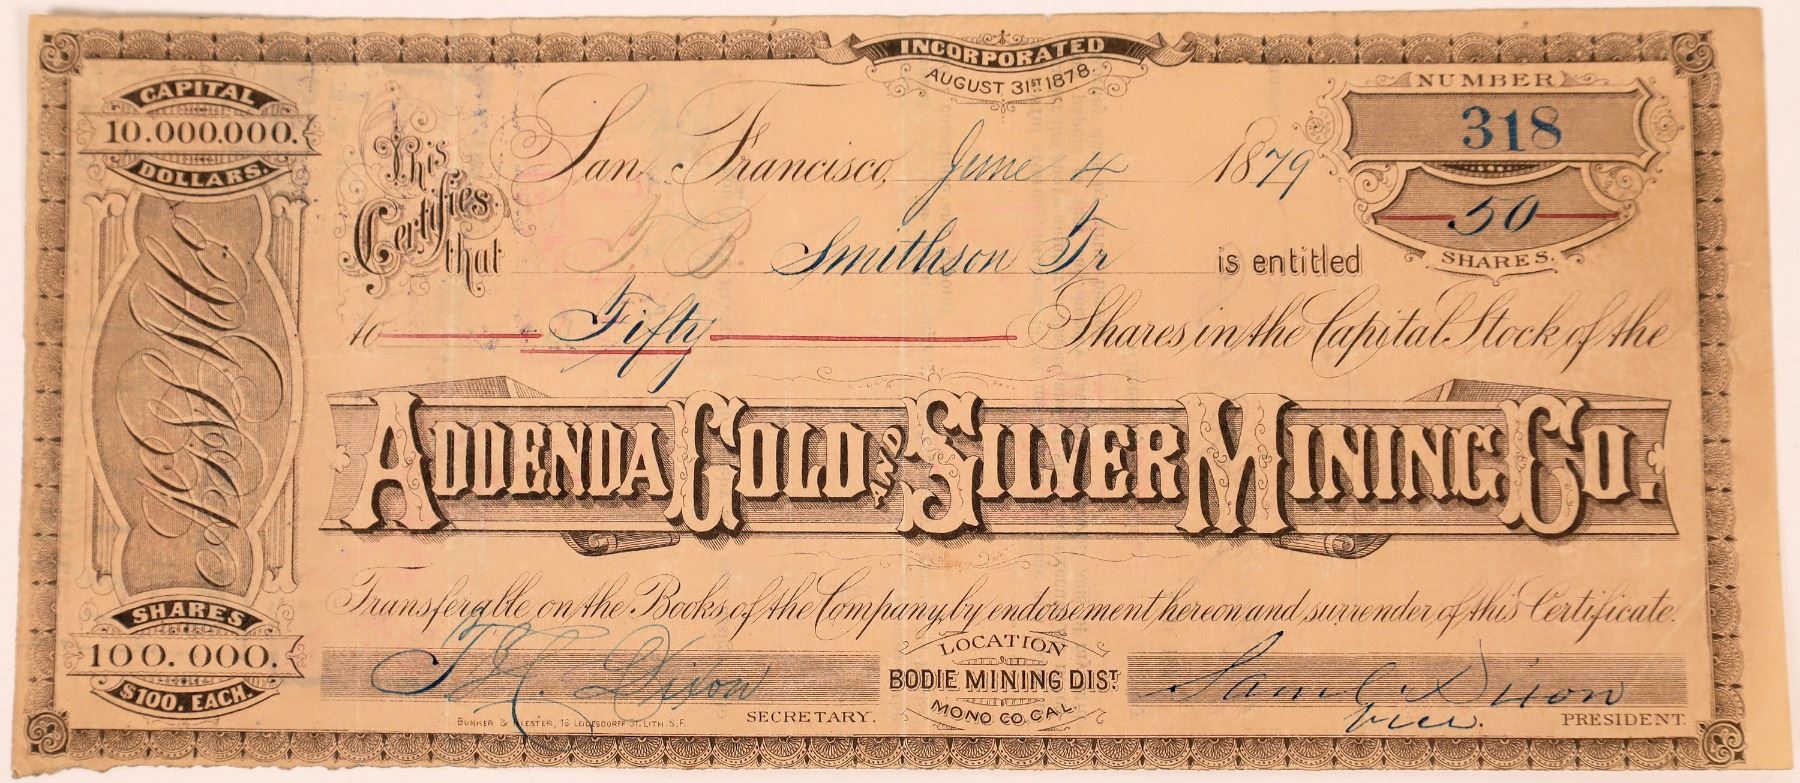 INCORPORATED
AUGUST 31ST 1878.
CAPITAL
10.000.000.
DOLLARS.
NUMBER
318
50
SHARES.
This Certifies that
San Francisco, June 4 1879
T. B. Smithson Tr is entitled
to Fifty Shares in the Capital Stock of the
ADDENDA GOLD AND SILVER MINING CO.
A G & S M Co
Transferable on the Books of the Company, by endorsement hereon and surrender of this Certificate.
SHARES
100.000.
$100. EACH.
Dixon
SECRETARY.
LOCATION
BODIE MINING DIST
MONO CO. CAL.
Saml Dixon
vice.
PRESIDENT.
BUNKER & HIESTER, 16 LEIDESDORFF ST. LITH. S.F.